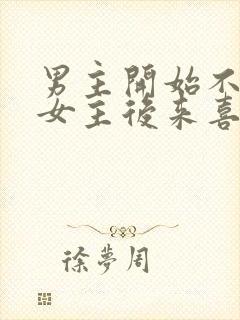 男主開始不
女主後來喜
徐夢周